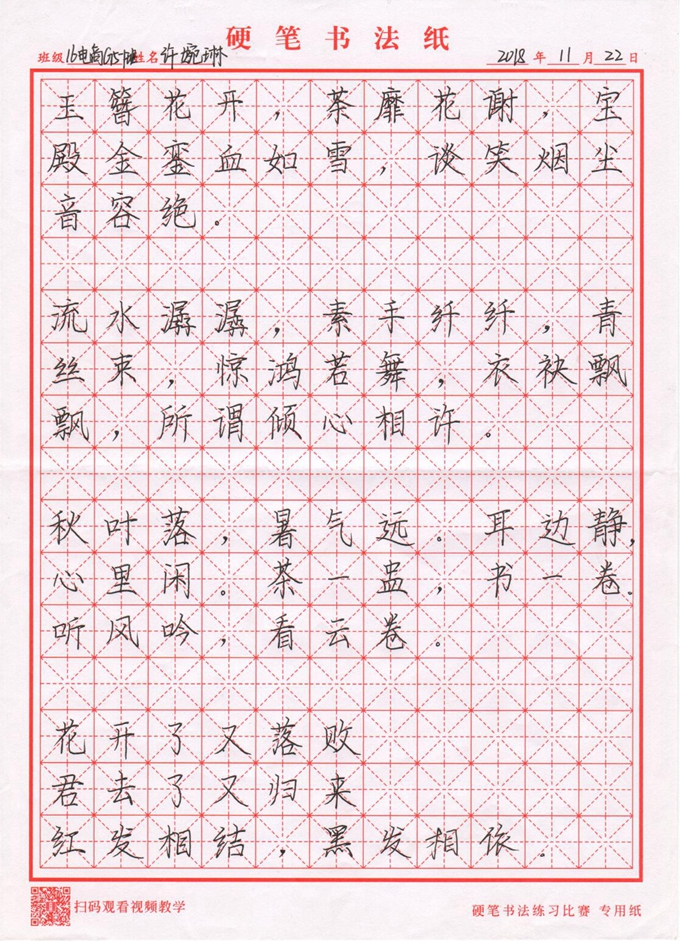 硬笔书法纸
班级 16电商G5班 姓名 许婉琳 2018 年 11 月 22 日
玉簪花开，荼靡花谢，宝
殿金銮血如雪，谈笑烟尘
音容绝。
流水潺潺，素手纤纤，青
丝束，惊鸿若舞，衣袂飘
飘，所谓倾心相许。
秋叶落，暑气远。耳边静，
心里闲。茶一盅，书一卷。
听风吟，看云卷。
花开了又落败
君去了又归来
红发相结，黑发相依。
扫码观看视频教学
硬笔书法练习比赛 专用纸